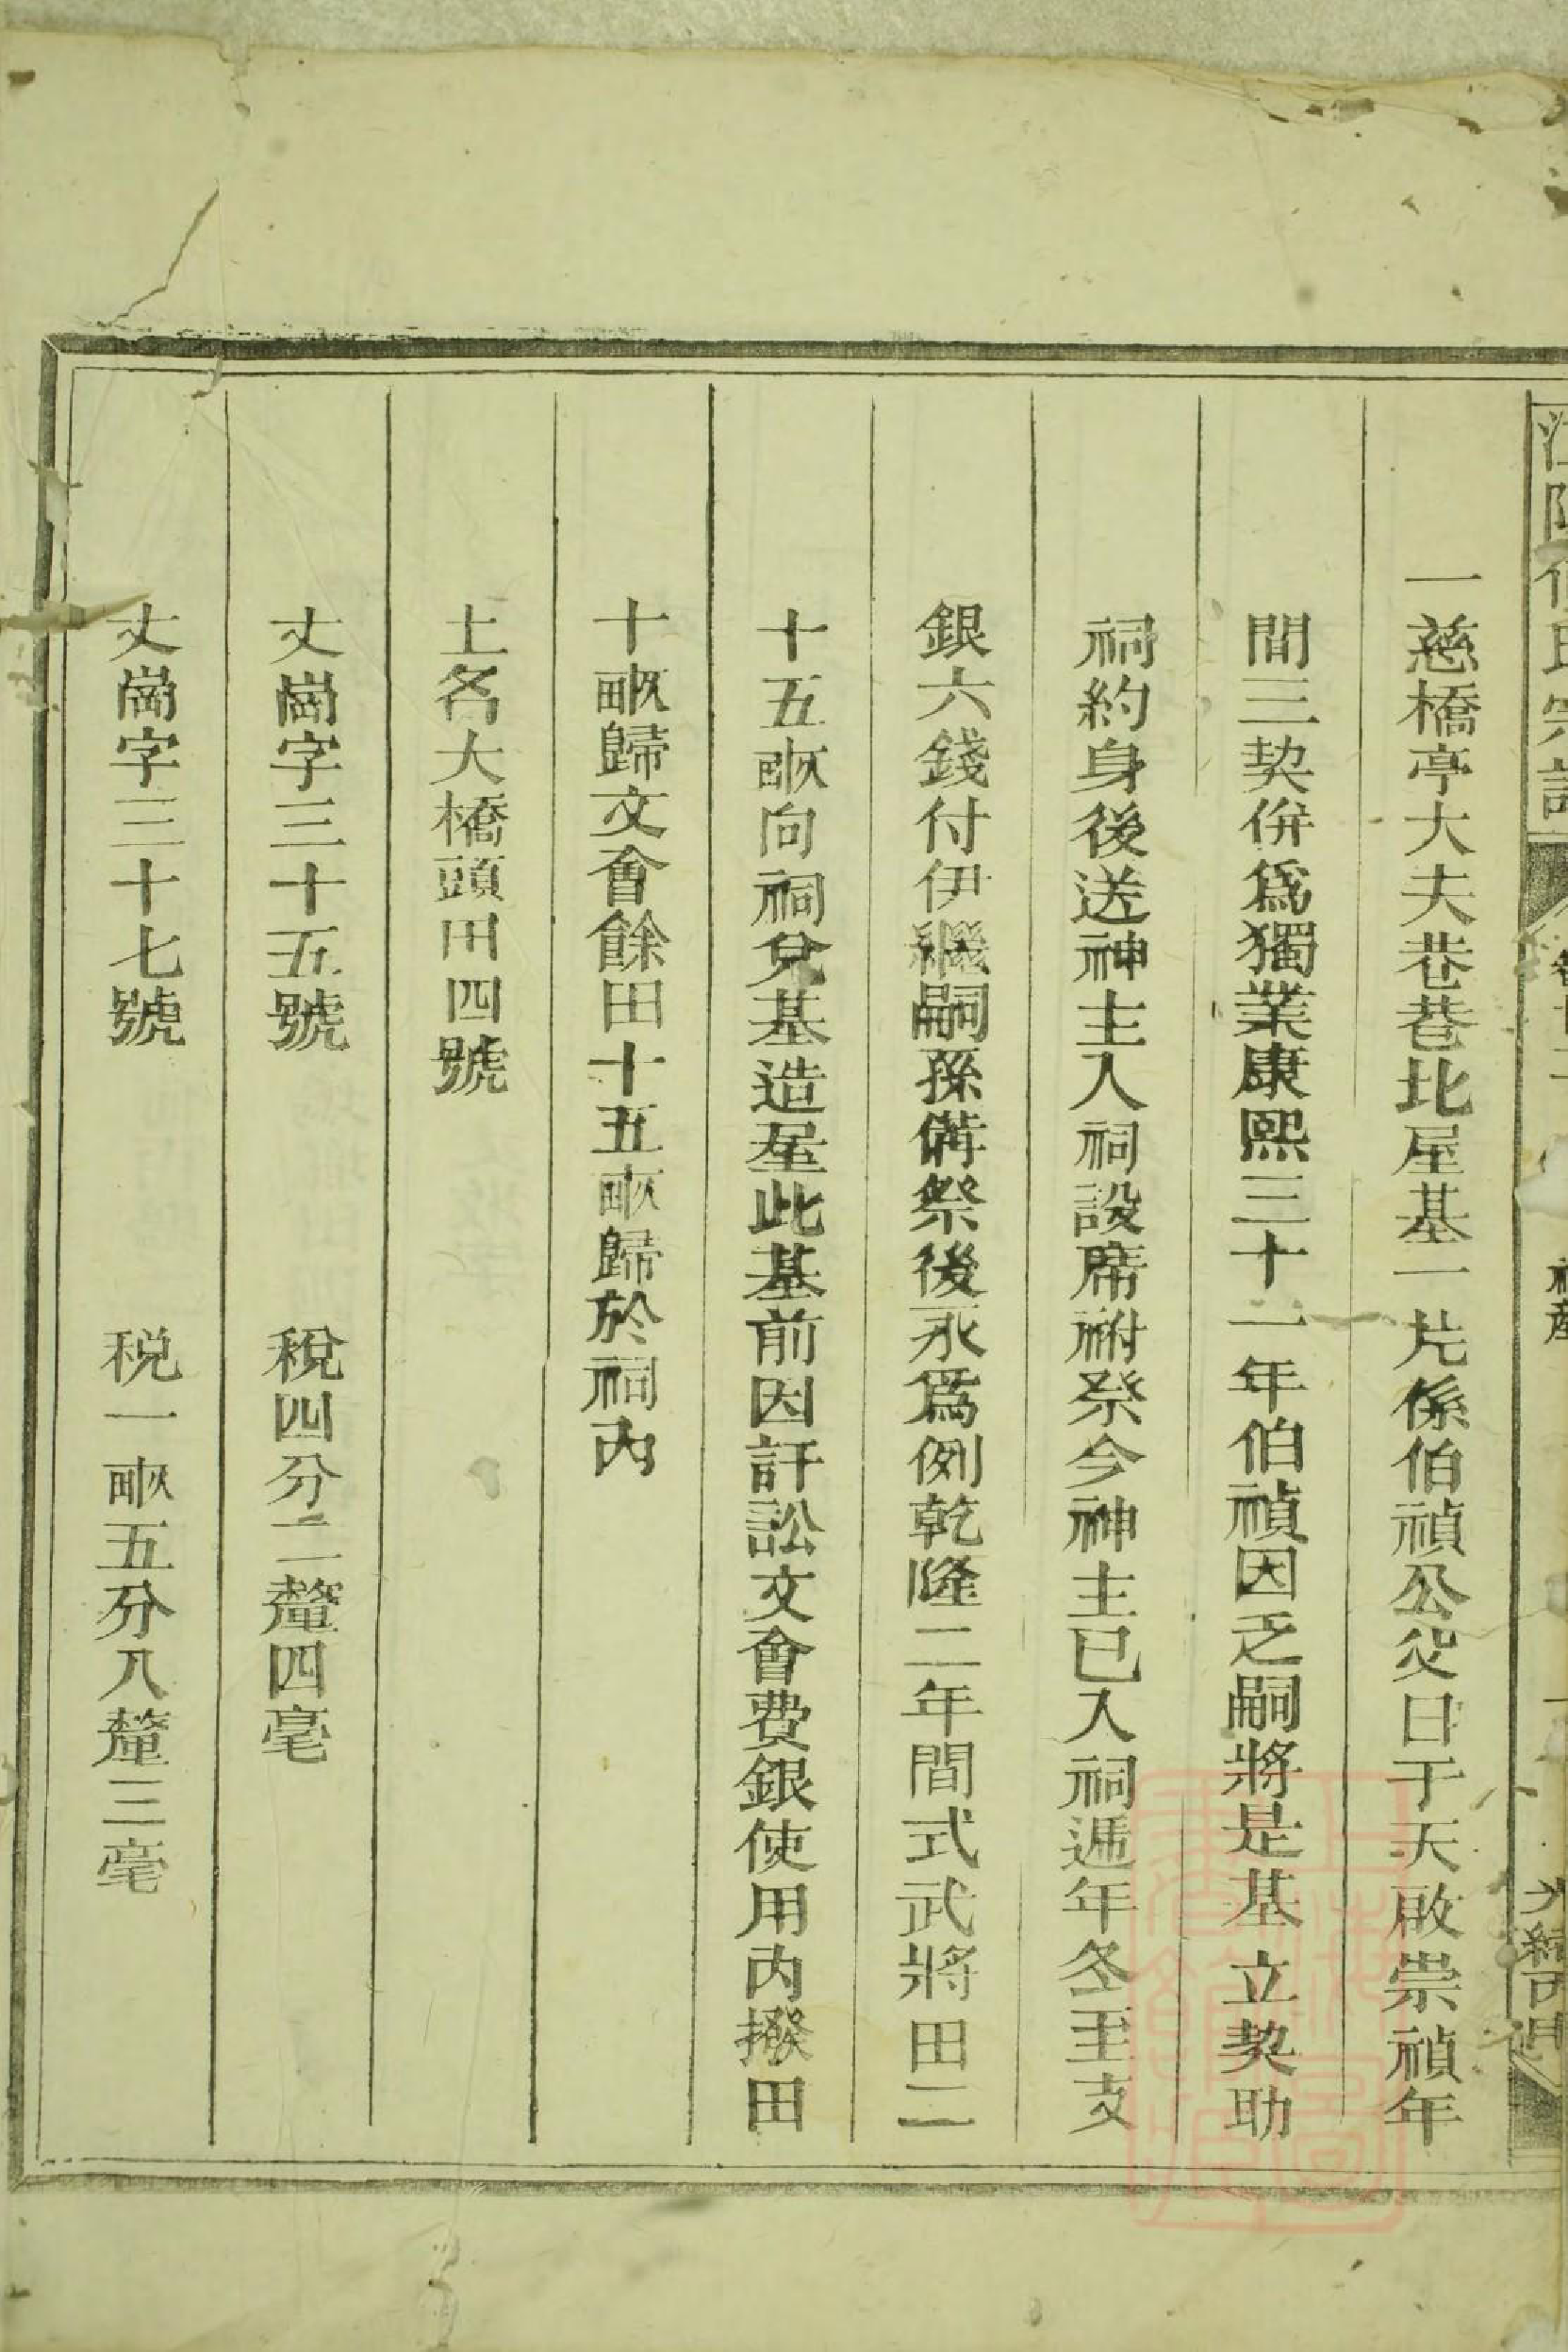 一慈橋亭大夫巷巷北屋基一片係伯禎公父日于天啟崇禎年
間三契併爲獨業康熙三十一年伯禎因乏嗣將是基立契助
祠約身後送神主入祠設席祔祭今神主已入祠遞年冬至支
銀六錢付伊繼嗣孫備祭後永爲例乾隆二年間式武將田二
十五畝向祠兌基造屋此基前因訐訟文會費銀使用內撥田
十畝歸文會餘田十五畝歸於祠內
土名大橋頭田四號
丈崗字三十五號 稅四分二釐四毫
丈崗字三十七號 税一畝五分八釐三毫